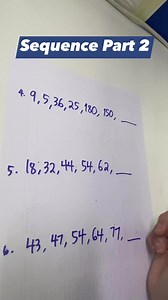 Sequence Part 2
4. 9, 5, 36, 25, 180, 150, __
5. 18, 32, 44, 54, 62, __
6. 43, 47, 54, 64, 77, __